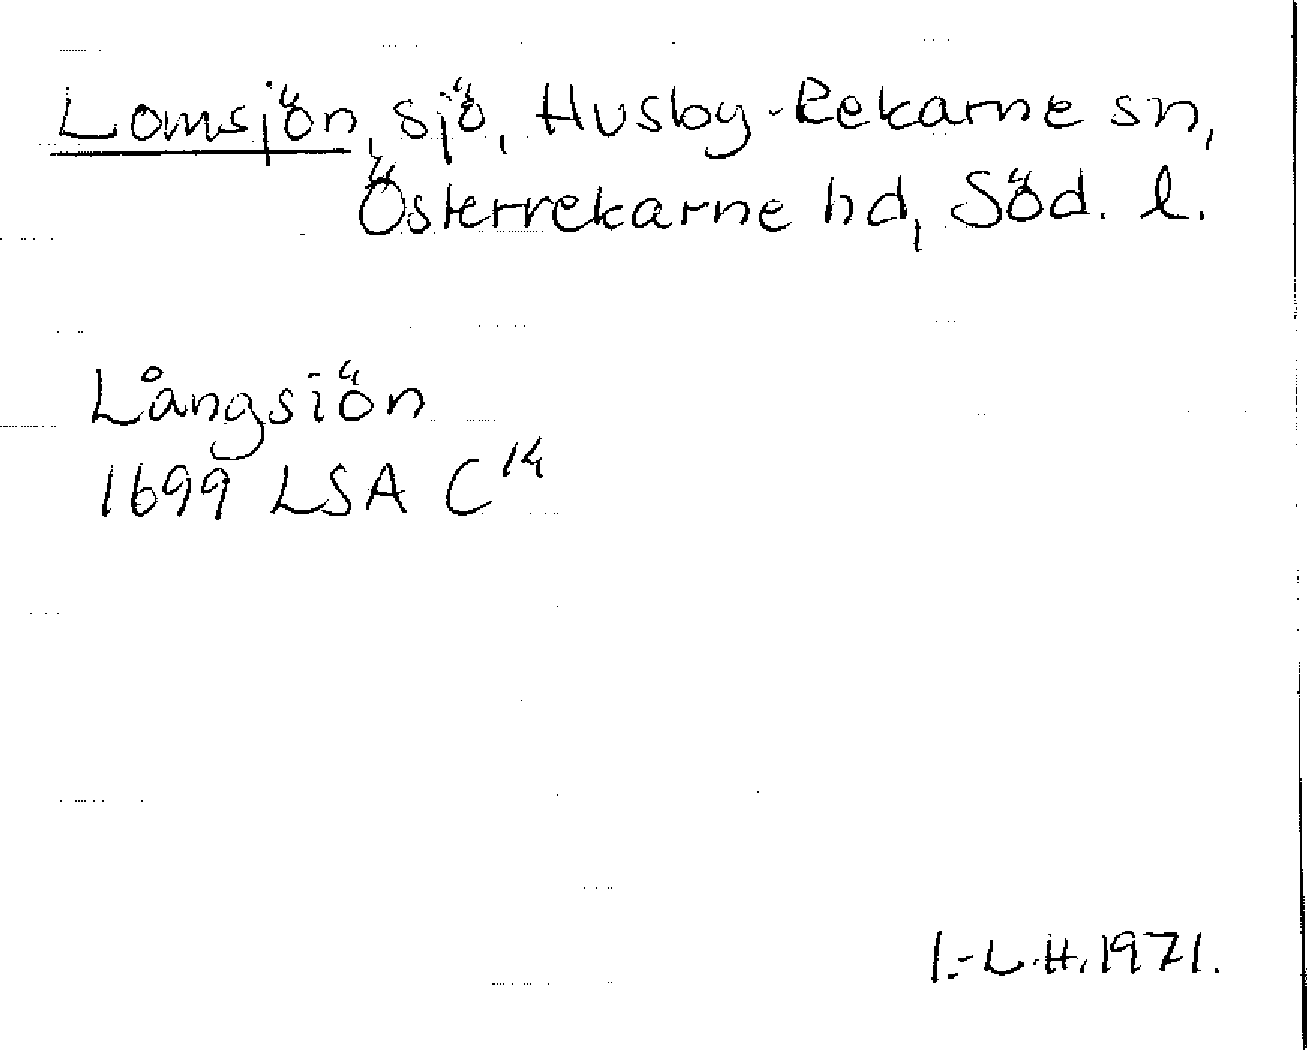 Lomsjön, sjö, Husby-Rekarne sn,
Österrekarne hd, Söd. l.
Långsiön
1699 LSA C¹⁴
I.-L.H. 1971.